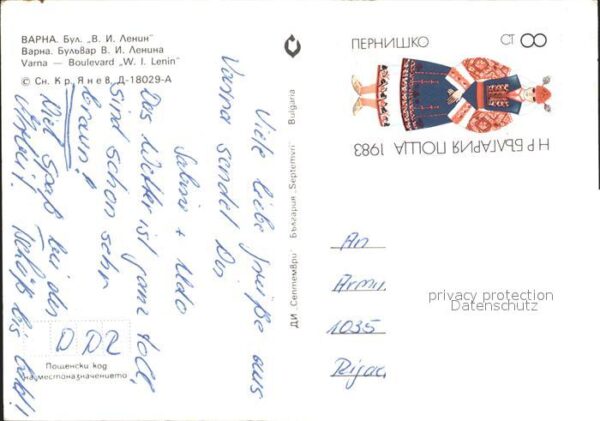 ВАРНА. Бул. „В. И. Ленин"
Варна. Бульвар В. И. Ленина
Varna — Boulevard „W. I. Lenin"
© Сн. Кр. Янев Д-18029-А
Viele liebe Grüße aus
Varna sendet Dir
Sabine + Udo
Das Wetter ist ganz toll,
sind schon sehr
braun!
Viel Spaß bei der
Arbeit! bis bald!
DDR
Пощенски код
на местоназначението
ДИ „Септември" България „Septemvri" Bulgaria
ПЕРНИШКО
СТ 8
НР БЪЛГАРИЯ ПОЩА 1983
An
Armin
1035
privacy protection
Datenschutz